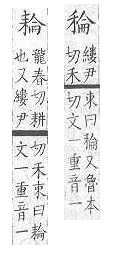 稐
縷尹
切禾
束曰稐又魯本
切文一重音一
耣
龍春切耕
也又縷尹
切禾束曰耣
文一重音一